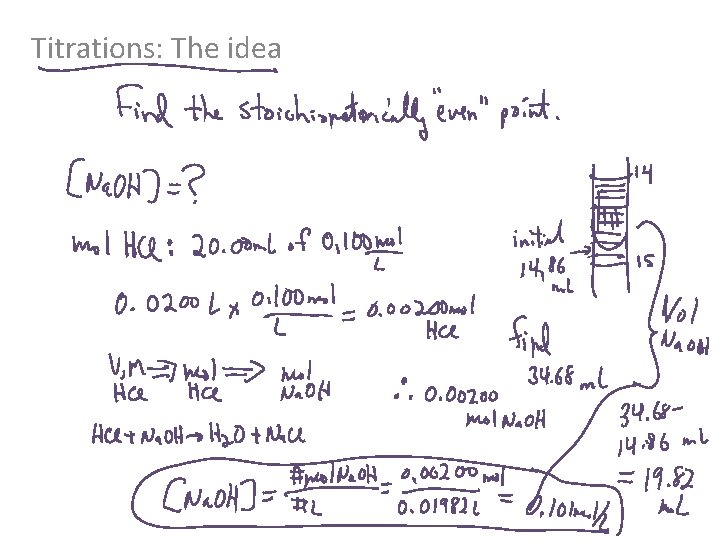 Titrations: The idea
Find the stoichiometrically "even" point.
[NaOH] = ?
mol HCl: 20.00mL of 0.100 mol/L
0.0200 L x 0.100 mol/L = 0.00200 mol HCl
V, M HCl ⇒ mol HCl ⇒ mol NaOH
∴ 0.00200 mol NaOH
HCl + NaOH → H2O + NaCl
[NaOH] = # mol NaOH/# L = 0.00200 mol/0.01982 L = 0.101 mol/L
14
initial
14.86 mL
15
final
34.68 mL
Vol NaOH
34.68 -
14.86 mL
= 19.82 mL